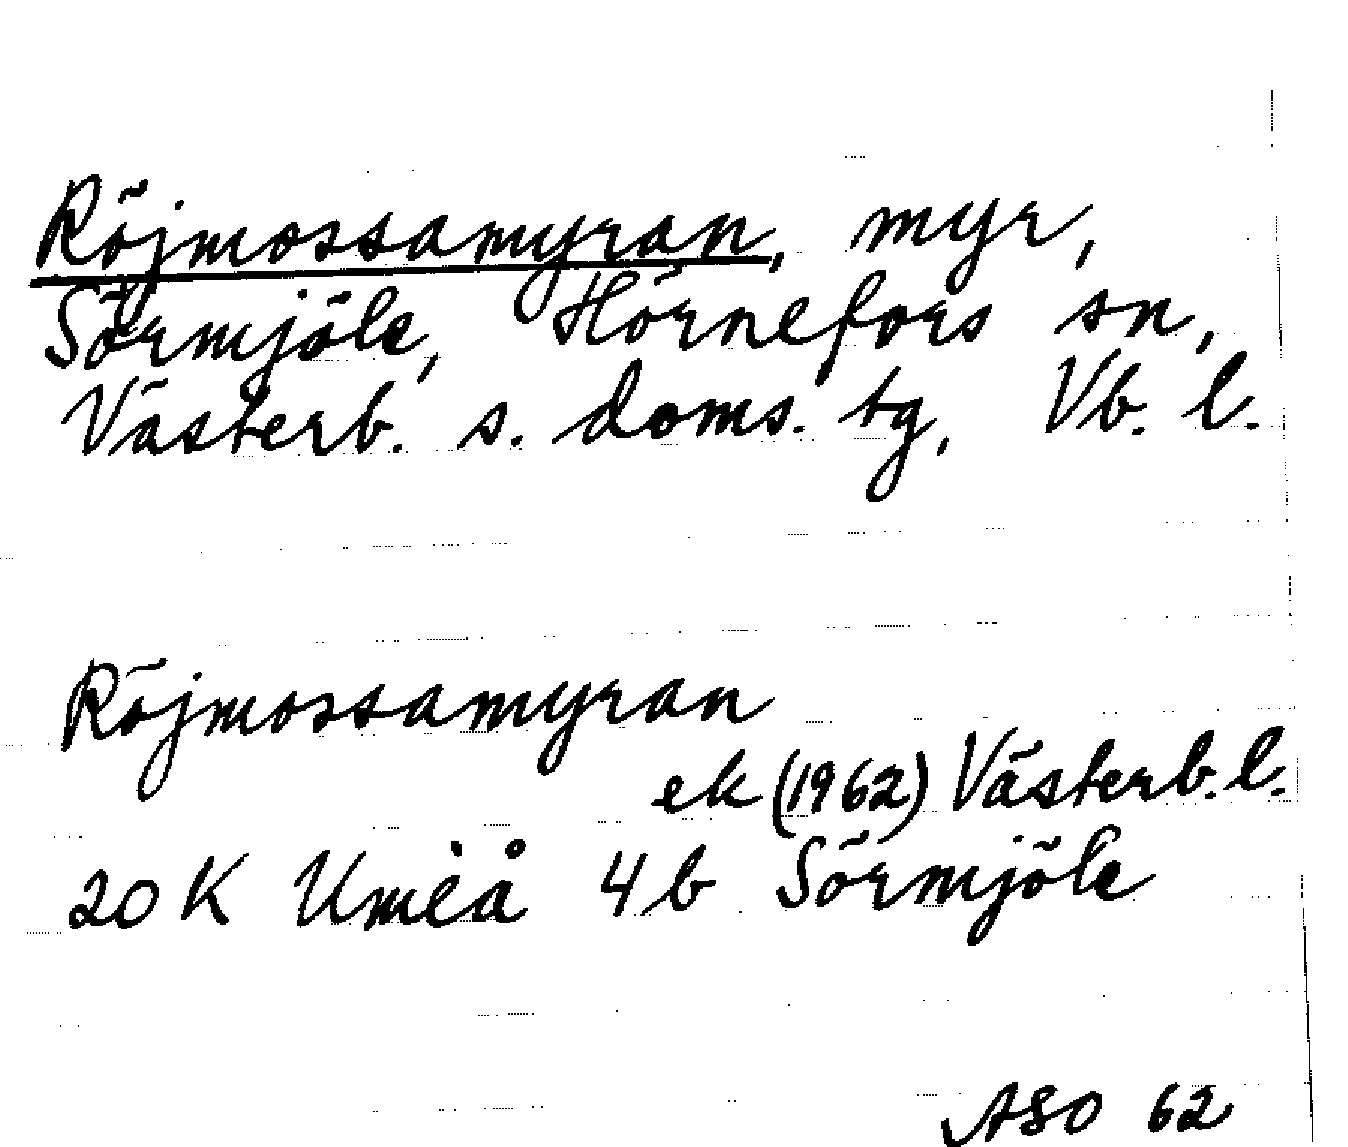 Röjmossamyran, myr,
Sörmjöle, Hörnefors sn,
Västerb. s. doms. tg, Vb. l.
Röjmossamyran
ek (1962) Västerb. l.
20 K Umeå 4 b Sörmjöle
ASO 62